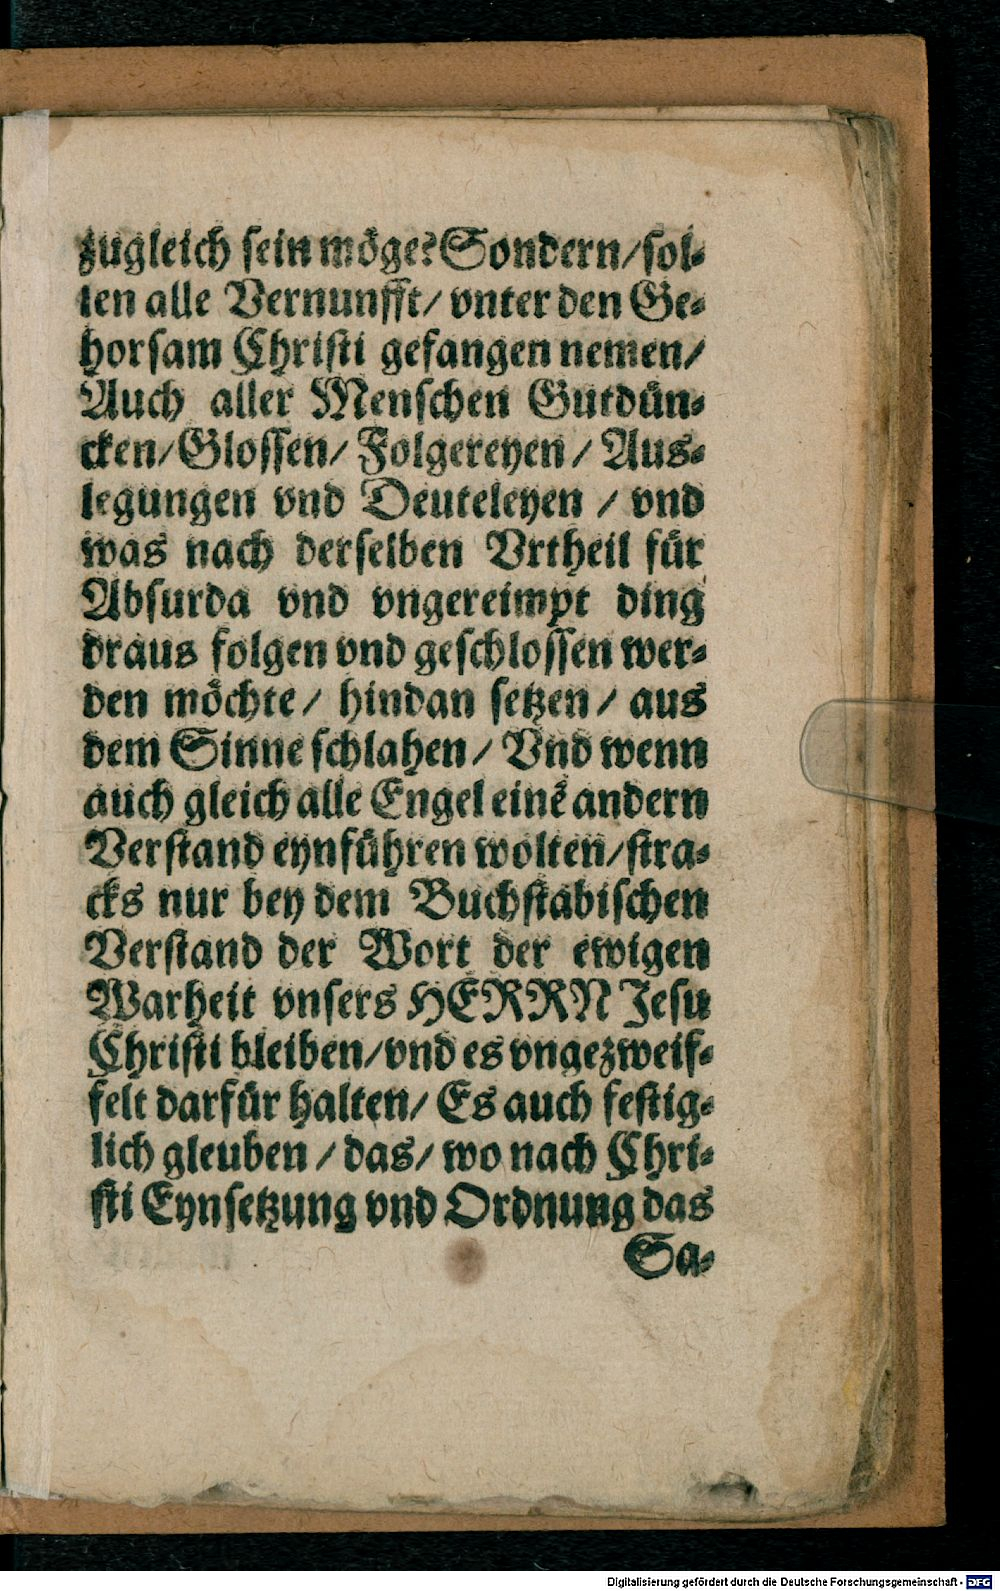 zugleich sein möge? Sondern/sol-
len alle Vernunfft/ vnter den Ge-
horsam Christi gefangen nemen/
Auch aller Menschen Gutdün-
cken/Glossen/ Folgereyen/ Aus-
legungen vnd Deuteleyen / vnd
was nach derselben Vrtheil für
Absurda vnd vngereimpt ding
draus folgen vnd geschlossen wer-
den möchte/ hindan setzen/ aus
dem Sinne schlahen/ Vnd wenn
auch gleich alle Engel einē andern
Verstand eynführen wolten/stra-
cks nur bey dem Buchstabischen
Verstand der Wort der ewigen
Warheit vnsers HERRN Jesu
Christi bleiben/vnd es vngezweif-
felt darfür halten/ Es auch festig-
lich gleuben / das/ wo nach Chri-
sti Eynsetzung vnd Ordnung das
Sa-
Digitalisierung gefördert durch die Deutsche Forschungsgemeinschaft - DFG